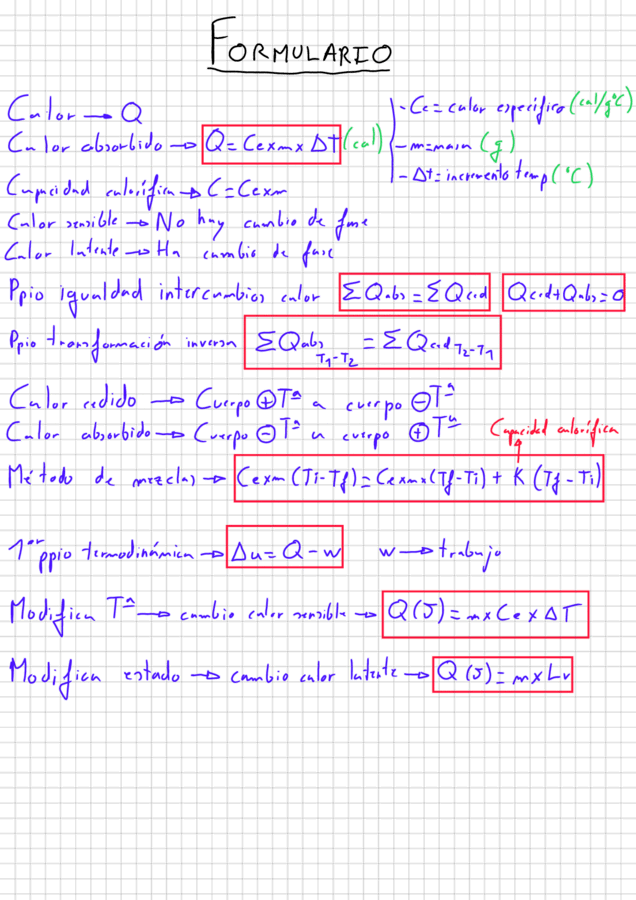 FORMULARIO
Calor → Q
Calor absorbido → Q = Cexmx Δt (cal)
- Ce = calor específico (cal/gºC)
- m = masa (g)
- Δt = incremento temp (ºC)
Capacidad calorífica → C = Cexm
Calor sensible → No hay cambio de fase
Calor latente → Ha cambio de fase
Ppio igualdad intercambios calor ΣQabs = ΣQced Qced + Qabs = 0
Ppio transformación inversa ΣQabs T1-T2 = ΣQced T2-T1
Calor cedido → Cuerpo ⊕Tª a cuerpo ⊖Tª
Calor absorbido → Cuerpo ⊖Tª a cuerpo ⊕Tª
Capacidad calorífica
Método de mezclas → Cexm (Ti - Tf) = Cexmx (Tf - Ti) + K (Tf - Ti)
1er ppio termodinámica → Δu = Q - w w → trabajo
Modifica Tª → cambio calor sensible → Q (J) = mx Ce x ΔT
Modifica estado → cambio calor latente → Q (J) = m x Lv